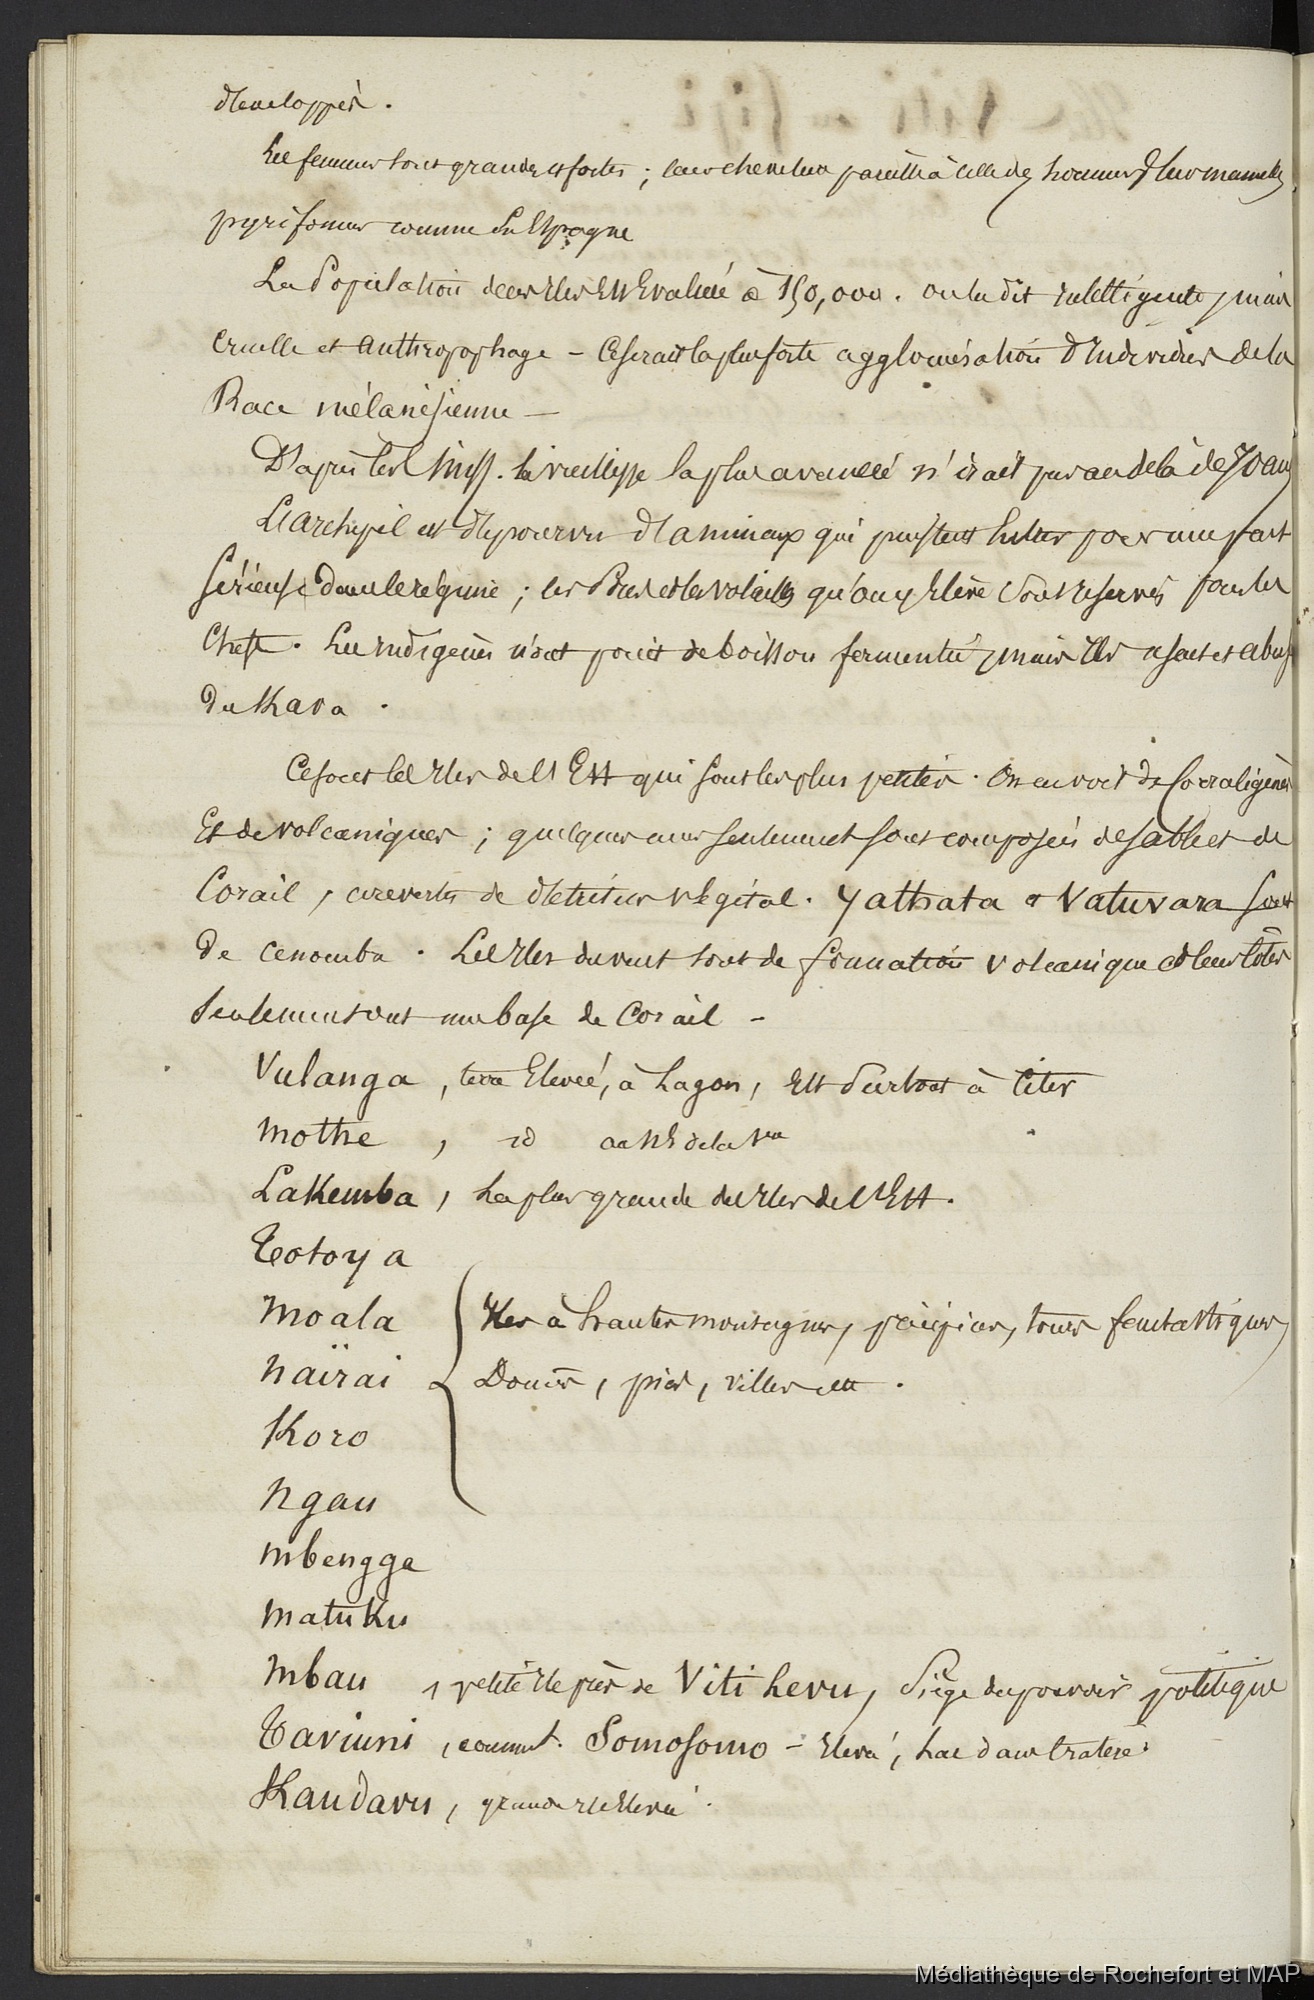 développés.
Les femmes sont grandes et fortes ; leur chevelure pareille à celle des hommes & leurs mamelles
pyriformes comme en Espagne
La Population de ces Iles est Evaluée à 150,000. on la dit intelligente, mais
cruelle et anthropophage – Ce serait la plus forte agglomération d'Individus de la
Race mélanésienne —
D'après les Miss. la vieillesse la plus avancée n'irait pas au delà de 70 ans
L'archipel est dépourvu d'animaux qui puissent entrer pour une part
sérieuse dans le régime ; les Porcs et les volailles qu'on y Elève sont réservés pour les
Chefs. Les indigènes n'ont point de boisson fermentée, mais Ils usent et abusent
du Kava.
Ce sont les Iles de l'Est qui sont les plus petites. On en voit de coralligènes
Et de volcaniques ; quelques unes seulement sont composées de sable et de
Corail, couvertes de détritus végétal. Yathata & Vatuvara sont
de ce nombre. Les Iles du vent sont de formation volcanique et leurs côtes
seulement ont une base de Corail –
Vulanga, terre Elevée, à Lagon, Est surtout à citer
Mothe, id au NE de la
Lakemba, La plus grande des Iles de l'Est.
Totoya
Moala { Iles à hautes montagnes, précipices, tours fantastiques,
Naïrai Dômes, pics, villes etc.
Koro
Ngau
Mbengga
Matuku
Mbau, petite Ile près de Viti Levu, Siège du pouvoir politique
Taviuni, commt. Somosomo – Elevée, Lac dans cratère.
Kandavu, grande Ile Elevée.
Médiathèque de Rochefort et MAP